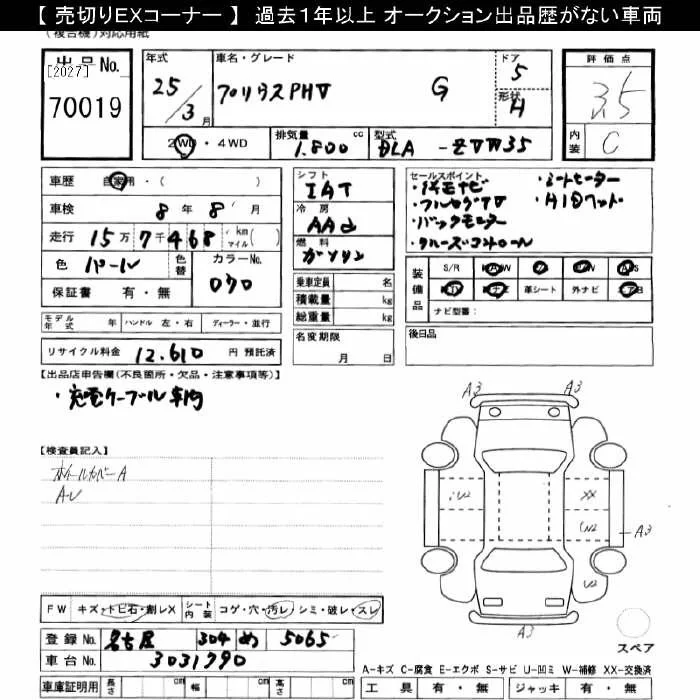 【 売切りEXコーナー 】 過去１年以上 オークション出品歴がない車両
(複合機)対応用紙
出品No. [2027] 70019
年式 25/3月
車名・グレード プリウスPHV G
ドア 5
形状 H
2WD・4WD
排気量 1.800 cc
型式 DLA - ZVW35
評価点 3.5
内装 C
車歴 自家用・( )
車検 8年 8月
走行 15万7千468 km マイル( )
色 パール
色替
カラーNo. 070
保証書 有・無
シフト IAT
冷房 AAC
燃料 ガソリン
乗車定員 名
積載量 kg
総重量 kg
セールスポイント
・純正ナビ
・フルセグTV
・バックモニター
・クルーズコントロール
・シートヒーター
・HIDヘッド
装備品 S/R AW PS PW ABS
TV ナビ 革シート 外ナビ エアB
ナビ型番:
モデル年式 年 ハンドル 左・右 ディーラー・並行
リサイクル料金 12.610 円 預託済
名変期限 月 日
後日品
【出品店申告欄(不良箇所・欠品・注意事項等)】
・充電ケーブル車内
【検査員記入】
ホイールカバーA
A-U
A3 A3
U2 XX
U2
A3
U2
A3
スペア
FW キズ・トビ石・割レX シート内装 コゲ・穴・汚レ・シミ・破レ・スレ
登録No. 名古屋 304 め 5065
車台No. 3031790
車庫証明用 長さ cm 幅 cm 高さ cm
A-キズ C-腐食 E-エクボ S-サビ U-凹ミ W-補修 XX-交換済
工具 有・無 ジャッキ 有・無